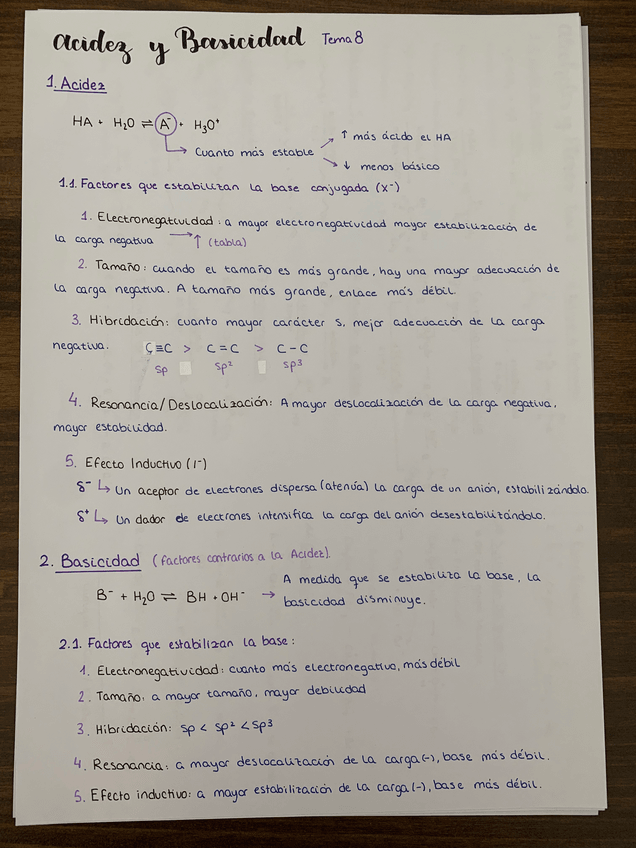 Acidez y Basicidad Tema 8
1. Acidez
HA + H₂O ⇌ A⁻ + H₃O⁺
↑ más ácido el HA
Cuanto más estable
↓ menos básico
1.1. Factores que estabilizan la base conjugada (X⁻)
1. Electronegatividad: a mayor electronegatividad mayor estabilización de
la carga negativa → ↑ (tabla)
2. Tamaño: cuando el tamaño es más grande, hay una mayor adecuación de
la carga negativa. A tamaño más grande, enlace más débil.
3. Hibridación: cuanto mayor carácter s, mejor adecuación de la carga
negativa. C≡C > C=C > C-C
sp sp² sp³
4. Resonancia/Deslocalización: A mayor deslocalización de la carga negativa,
mayor estabilidad.
5. Efecto Inductivo (I⁻)
δ⁻ ↳ Un aceptor de electrones dispersa (atenúa) la carga de un anión, estabilizándolo.
δ⁺ ↳ Un dador de electrones intensifica la carga del anión desestabilizándolo.
2. Basicidad (factores contrarios a la Acidez).
B⁻ + H₂O ⇌ BH + OH⁻ → A medida que se estabiliza la base, la
basicidad disminuye.
2.1. Factores que estabilizan la base:
1. Electronegatividad: cuanto más electronegativo, más débil
2. Tamaño: a mayor tamaño, mayor debilidad
3. Hibridación: sp < sp² < sp³
4. Resonancia: a mayor deslocalización de la carga (-), base más débil.
5. Efecto inductivo: a mayor estabilización de la carga (-), base más débil.